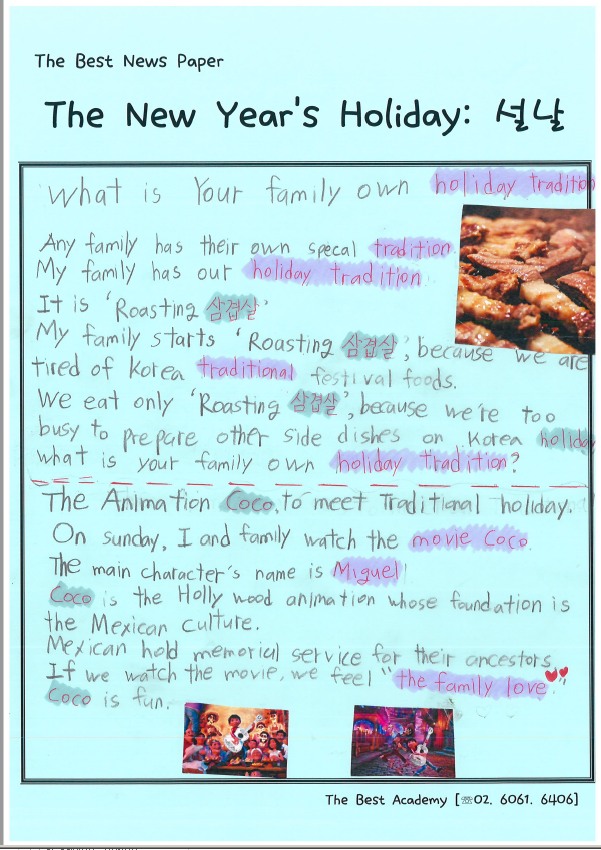 The Best News Paper
The New Year's Holiday: 설날
What is Your family own holiday tradition
Any family has their own specal tradition.
My family has our holiday tradition.
It is 'Roasting 삼겹살'
My family starts 'Roasting 삼겹살', because we are
tired of Korea traditional festival foods.
We eat only 'Roasting 삼겹살', because we're too
busy to prepare other side dishes on Korea holiday
what is your family own holiday tradition?
The Animation Coco, to meet Traditional holiday.
On sunday, I and family watch the movie Coco.
The main character's name is Miguel!
Coco is the Holly wood animation whose foundation is
the Mexican culture.
Mexican hold memorial service for their ancestors.
If we watch the movie, we feel "the family love"
Coco is fun.
The Best Academy [☏02. 6061. 6406]